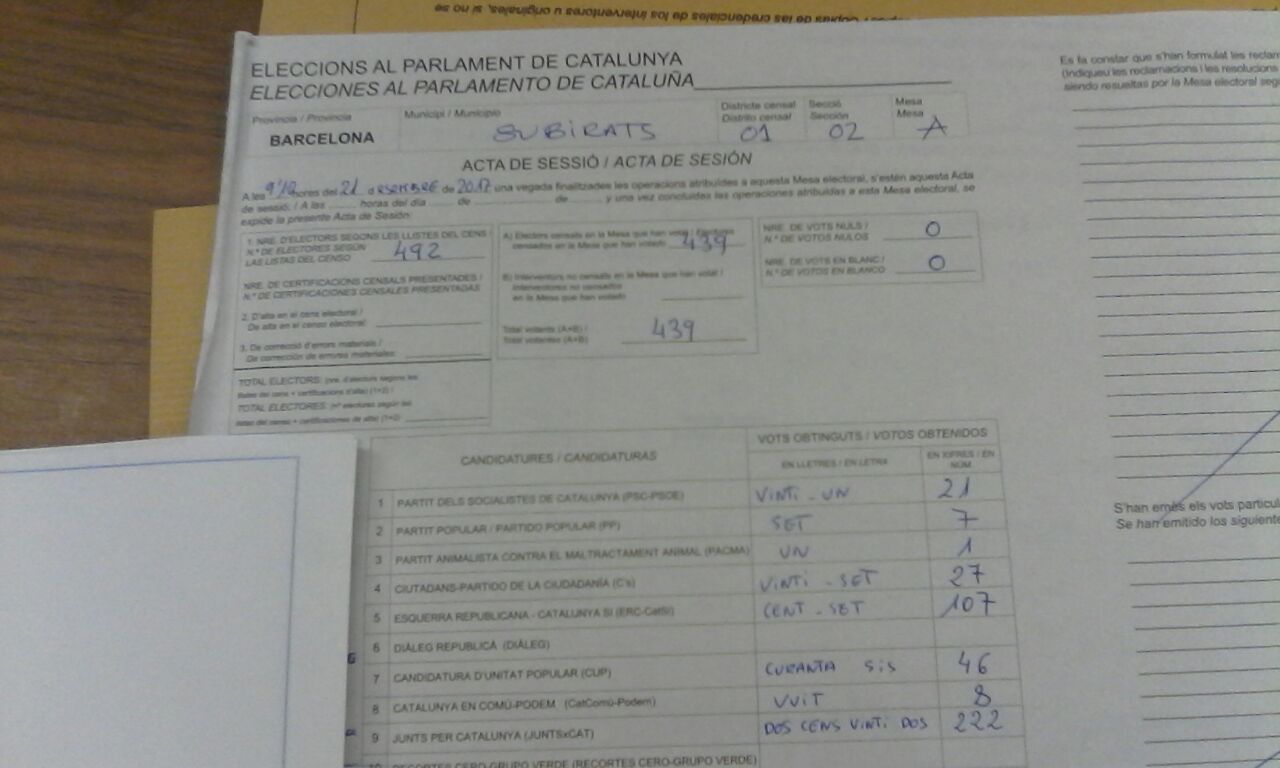 copias de las credenciales de los interventores u originales, si no se
ELECCIONS AL PARLAMENT DE CATALUNYA
ELECCIONES AL PARLAMENTO DE CATALUÑA
Província / Provincia
BARCELONA
Municipi / Municipio
SUBIRATS
Districte censal
Distrito censal
01
Secció
Sección
02
Mesa
Mesa
A
ACTA DE SESSIÓ / ACTA DE SESIÓN
A les hores del 21 de de 2017 una vegada finalitzades les operacions atribuïdes a aquesta Mesa electoral, s'estén aquesta Acta
de sessió. / A las ........ horas del día ........ de ........ de ........ y una vez concluidas las operaciones atribuidas a esta Mesa electoral, se
expide la presente Acta de Sesión:
1. NRE. D'ELECTORS SEGONS LES LLISTES DEL CENS /
N.º DE ELECTORES SEGÚN
LAS LISTAS DEL CENSO
492
NRE. DE CERTIFICACIONS CENSALS PRESENTADES /
N.º DE CERTIFICACIONES CENSALES PRESENTADAS
2. D'alta en el cens electoral /
De alta en el censo electoral:
3. De correcció d'errors materials /
De corrección de errores materiales:
TOTAL ELECTORS: (nre. d'electors segons les
llistes del cens + certificacions d'alta) (1+2) /
TOTAL ELECTORES: (nº electores según las
listas del censo + certificaciones de alta) (1+2)
A) Electors censats en la Mesa que han votat / Electores
censados en la Mesa que han votado
439
B) Interventors no censats en la Mesa que han votat /
Interventores no censados
en la Mesa que han votado
Total votants (A+B) /
Total votantes (A+B)
439
NRE. DE VOTS NULS /
N.º DE VOTOS NULOS
0
NRE. DE VOTS EN BLANC /
N.º DE VOTOS EN BLANCO
0
CANDIDATURES / CANDIDATURAS
VOTS OBTINGUTS / VOTOS OBTENIDOS
EN LLETRES / EN LETRA
EN XIFRES / EN
NÚM.
1 PARTIT DELS SOCIALISTES DE CATALUNYA (PSC-PSOE) VINTI - UN 21
2 PARTIT POPULAR / PARTIDO POPULAR (PP) SET 7
3 PARTIT ANIMALISTA CONTRA EL MALTRACTAMENT ANIMAL (PACMA) UN 1
4 CIUTADANS-PARTIDO DE LA CIUDADANÍA (C's) VINTI - SET 27
5 ESQUERRA REPUBLICANA - CATALUNYA SÍ (ERC-CatSí) CENT - SET 107
6 DIÀLEG REPUBLICÀ (DIÀLEG)
7 CANDIDATURA D'UNITAT POPULAR (CUP) CURANTA SIS 46
8 CATALUNYA EN COMÚ-PODEM (CatComú-Podem) VUIT 8
9 JUNTS PER CATALUNYA (JUNTSxCAT) DOS CENS VINTI DOS 222
10 RECORTES CERO-GRUPO VERDE (RECORTES CERO-GRUPO VERDE)
Es fa constar que s'han formulat les reclam
(Indiqueu les reclamacions i les resolucions
siendo resueltas por la Mesa electoral seg
S'han emès els vots particul
Se han emitido los siguiente